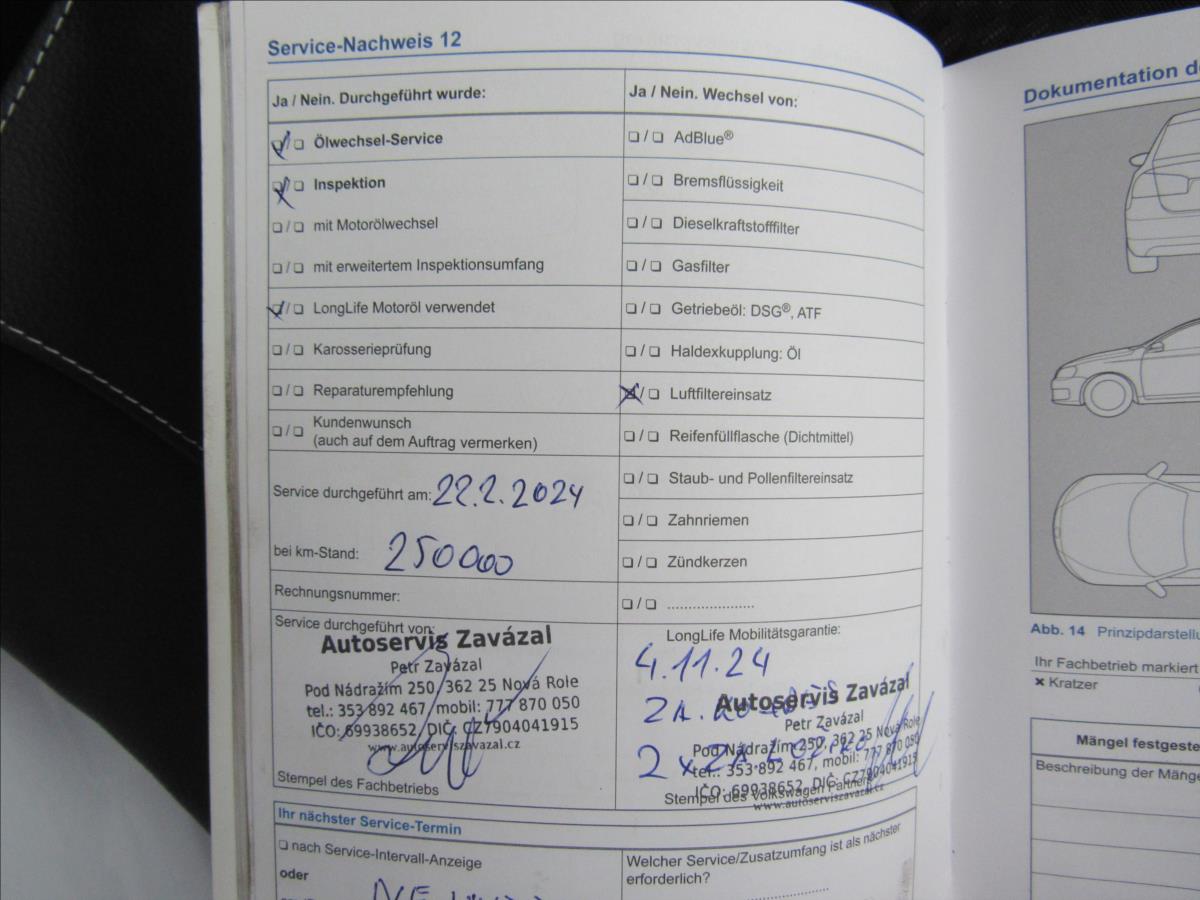 Service-Nachweis 12
Ja / Nein. Durchgeführt wurde:
❏ / ❏ Ölwechsel-Service
❏ / ❏ Inspektion
❏ / ❏ mit Motorölwechsel
❏ / ❏ mit erweitertem Inspektionsumfang
❏ / ❏ LongLife Motoröl verwendet
❏ / ❏ Karosserieprüfung
❏ / ❏ Reparaturempfehlung
❏ / ❏ Kundenwunsch
(auch auf dem Auftrag vermerken)
Service durchgeführt am: 22.2.2024
bei km-Stand: 250000
Rechnungsnummer:
Service durchgeführt von:
Autoservis Zavázal
Petr Zavázal
Pod Nádražím 250, 362 25 Nová Role
tel.: 353 892 467, mobil: 777 870 050
IČO: 69938652, DIČ: CZ7904041915
www.autoserviszavazal.cz
Stempel des Fachbetriebs
Ja / Nein. Wechsel von:
❏ / ❏ AdBlue®
❏ / ❏ Bremsflüssigkeit
❏ / ❏ Dieselkraftstofffilter
❏ / ❏ Gasfilter
❏ / ❏ Getriebeöl: DSG®, ATF
❏ / ❏ Haldexkupplung: Öl
❏ / ❏ Luftfiltereinsatz
❏ / ❏ Reifenfüllflasche (Dichtmittel)
❏ / ❏ Staub- und Pollenfiltereinsatz
❏ / ❏ Zahnriemen
❏ / ❏ Zündkerzen
❏ / ❏ ......................
LongLife Mobilitätsgarantie:
4.11.24
ZA.
Autoservis Zavázal
Petr Zavázal
2x ZA.
Pod Nádražím 250, 362 25 Nová Role
tel.: 353 892 467, mobil: 777 870 050
IČO: 69938652, DIČ: CZ7904041915
Stempel des Volkswagen Partners
www.autoserviszavazal.cz
Ihr nächster Service-Termin
❏ nach Service-Intervall-Anzeige
oder
Welcher Service/Zusatzumfang ist als nächster
erforderlich?
Dokumentation
Abb. 14
Ihr Fachbetrieb markiert
× Kratzer
Mängel
Beschreibung der